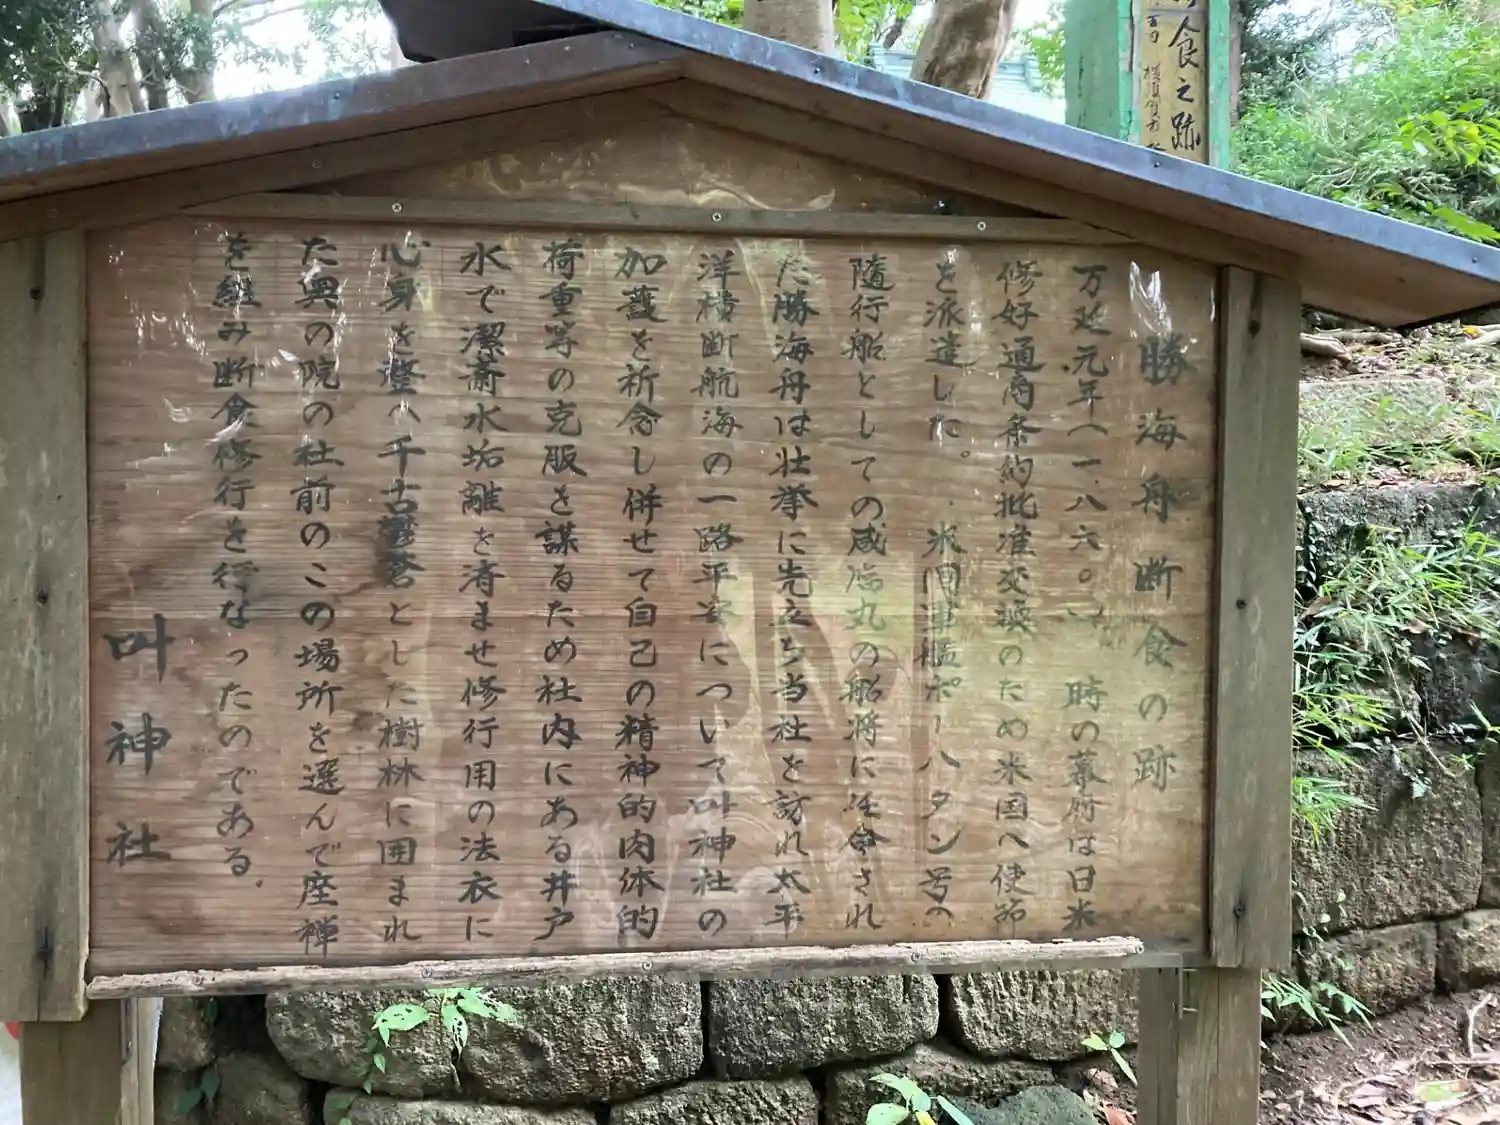 食之跡
勝海舟断食の跡
万延元年(一八六〇)時の幕府は日米
修好通商条約批准交換のため米国へ使節
を派遣した。米国軍艦ポーハタン号の
随行船としての咸臨丸の船将に任命され
た勝海舟は壮挙に先立ち当社を訪れ太平
洋横断航海の一路平安について叫神社の
加護を祈念し併せて自己の精神的肉体的
荷重等の克服を謀るため社内にある井戸
水で潔斎水垢離を済ませ修行用の法衣に
心身を整へ千古鬱蒼とした樹林に囲まれ
た奥の院の社前のこの場所を選んで座禅
を組み断食修行を行なったのである。
叫神社